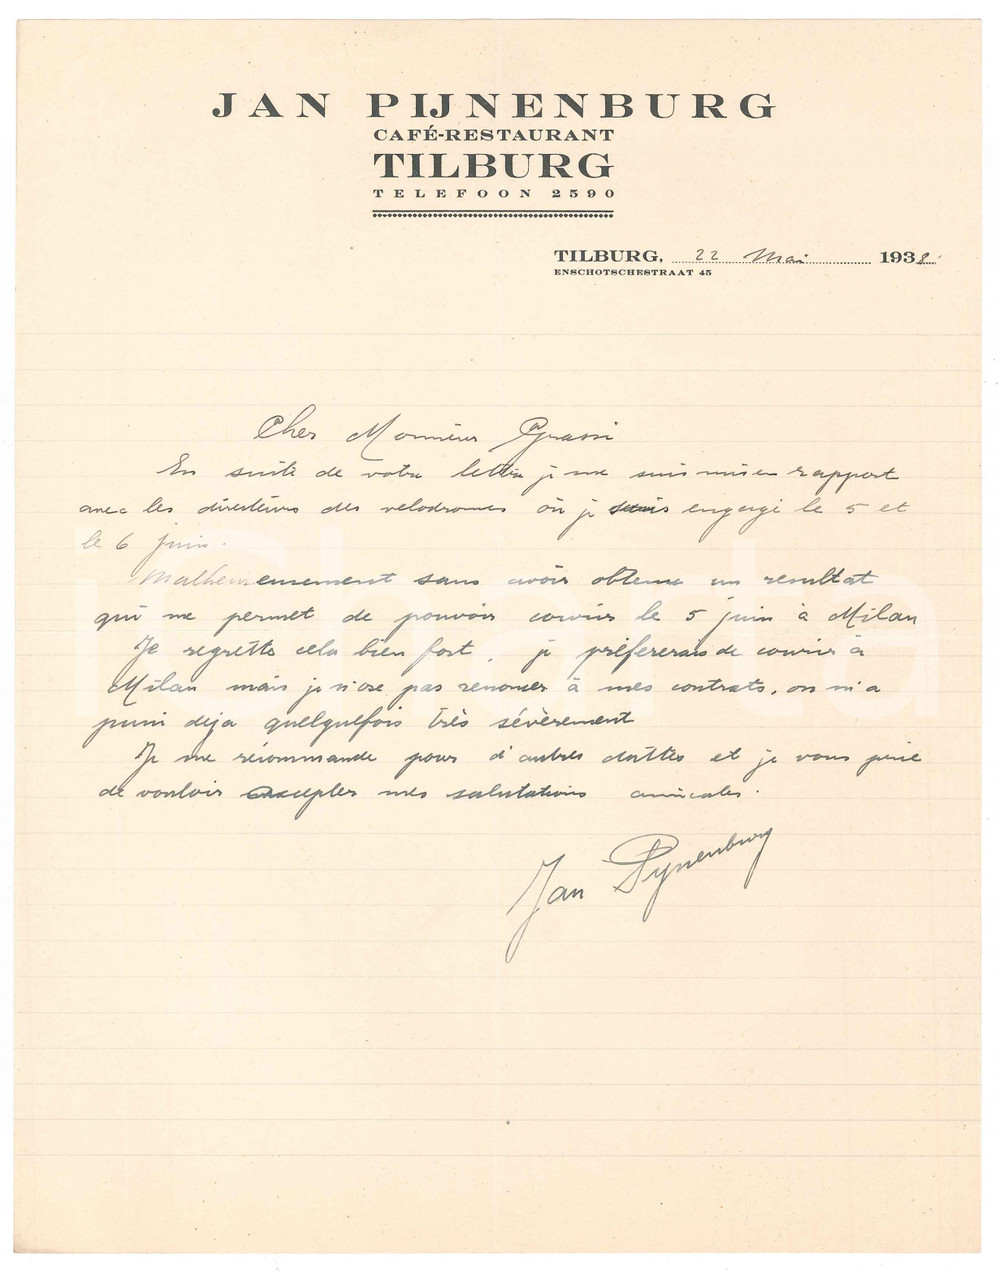 JAN PIJNENBURG
CAFÉ-RESTAURANT
TILBURG
TELEFOON 2590
TILBURG, 22 Mai 1938.
ENSCHOTSCHESTRAAT 45
Cher Monsieur Grassi
En suite de votre lettre je me suis mis en rapport
avec les directeurs des velodromes où je suis engagé le 5 et
le 6 juin.
Malheureusement sans avoir obtenu un resultat
qui me permet de pouvoir courir le 5 juin à Milan
Je regrette cela bien fort, je préfererais de courir à
Milan mais je n'ose pas renoncer à mes contrats, on m'a
puni deja quelquefois très sévèrement
Je me recommande pour d'autres dattes et je vous prie
de vouloir accepter mes salutations amicales.
Jan Pijnenburg